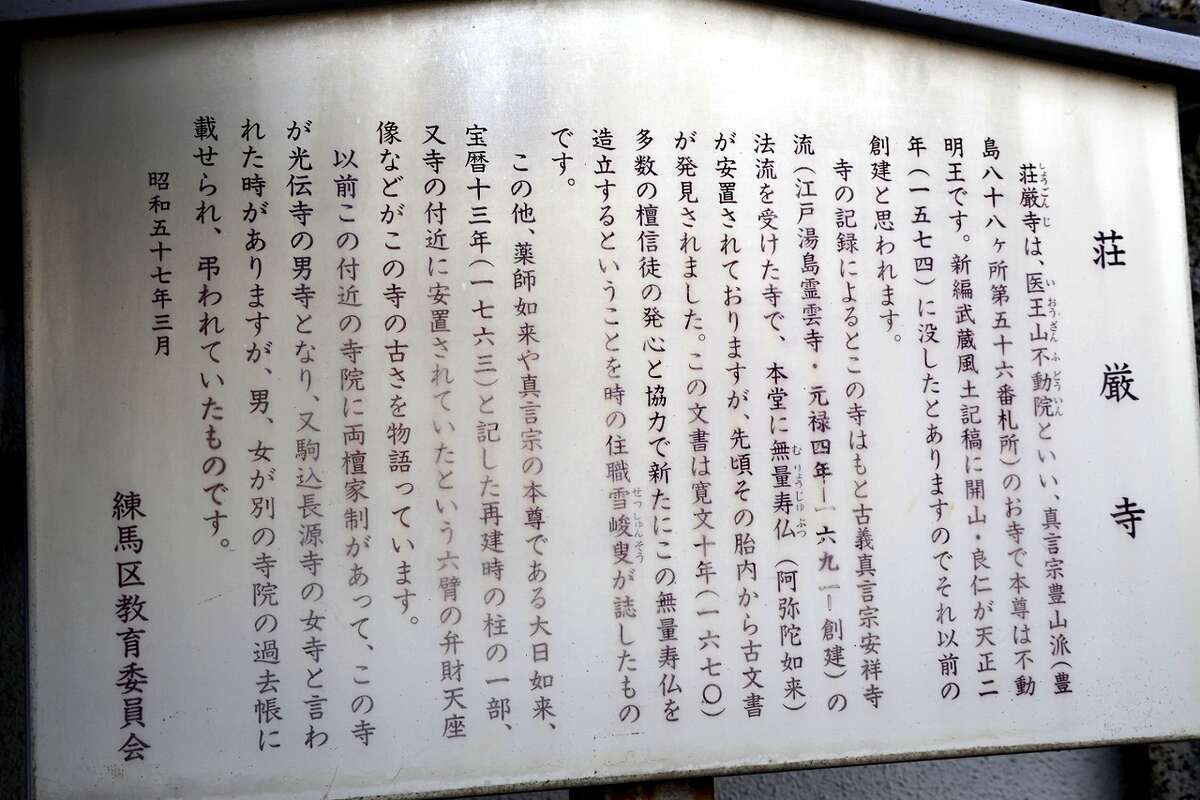 荘厳寺
荘厳寺は、医王山不動院といい、真言宗豊山派(豊
島八十八ヶ所第五十六番札所)のお寺で本尊は不動
明王です。新編武蔵風土記稿に開山・良仁が天正二
年(一五七四)に没したとありますのでそれ以前の
創建と思われます。
寺の記録によるとこの寺はもと古義真言宗安祥寺
流(江戸湯島霊雲寺・元禄四年―一六九一―創建)の
法流を受けた寺で、本堂に無量寿仏(阿弥陀如来)
が安置されておりますが、先頃その胎内から古文書
が発見されました。この文書は寛文十年(一六七〇)
多数の檀信徒の発心と協力で新たにこの無量寿仏を
造立するということを時の住職雪峻叟が誌したもの
です。
この他、薬師如来や真言宗の本尊である大日如来、
宝暦十三年(一七六三)と記した再建時の柱の一部、
又寺の付近に安置されていたという六臂の弁財天座
像などがこの寺の古さを物語っています。
以前この付近の寺院に両檀家制があって、この寺
が光伝寺の男寺となり、又駒込長源寺の女寺と言わ
れた時がありますが、男、女が別の寺院の過去帳に
載せられ、弔われていたものです。
昭和五十七年三月
練馬区教育委員会